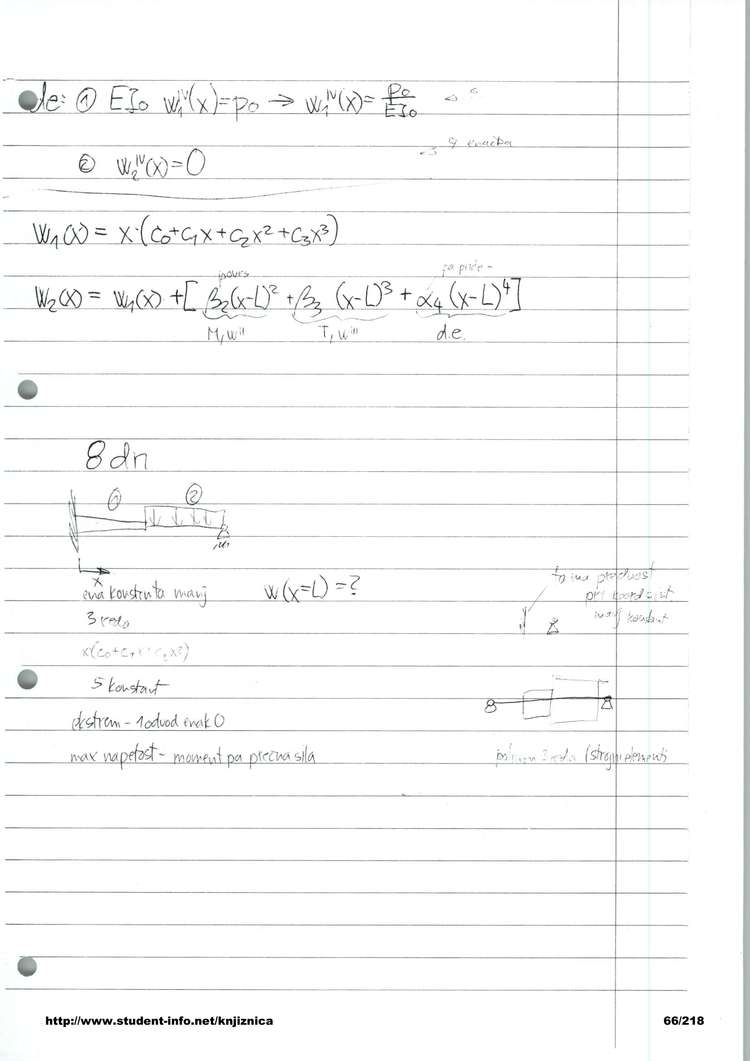 de: ① EI₀ w₁ᴵⱽ(x)=p₀ → w₁ᴵⱽ(x)= p₀/EI₀
② w₂ᴵⱽ(x)=0
9 enačba
W₁(x) = x·(c₀+c₁x+c₂x²+c₃x³)
W₂(x) = w₁(x) + [β₂(x-L)² + β₃ (x-L)³ + α₄ (x-L)⁴]
M, w'' T, w''' d.e.
8 dn
① ②
x
ena konstanta manj
w(x=L)=?
3 reda
5 konstant
ekstrem - 1 odvod enak 0
max napetost - moment pa prečna sila
to ima prednost
pri koord sist.
manj konstant
reda (strojni elementi
http://www.student-info.net/knjiznica
66/218